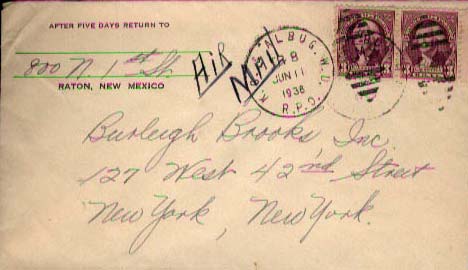 AFTER FIVE DAYS RETURN TO
800 N. 1st St.
RATON, NEW MEXICO
Air
Mail
ALBUQ. W.D.
JUN 11
1938
R.P.O.
Burleigh Brooks Inc.
127 West 42nd Street
New York, New York.